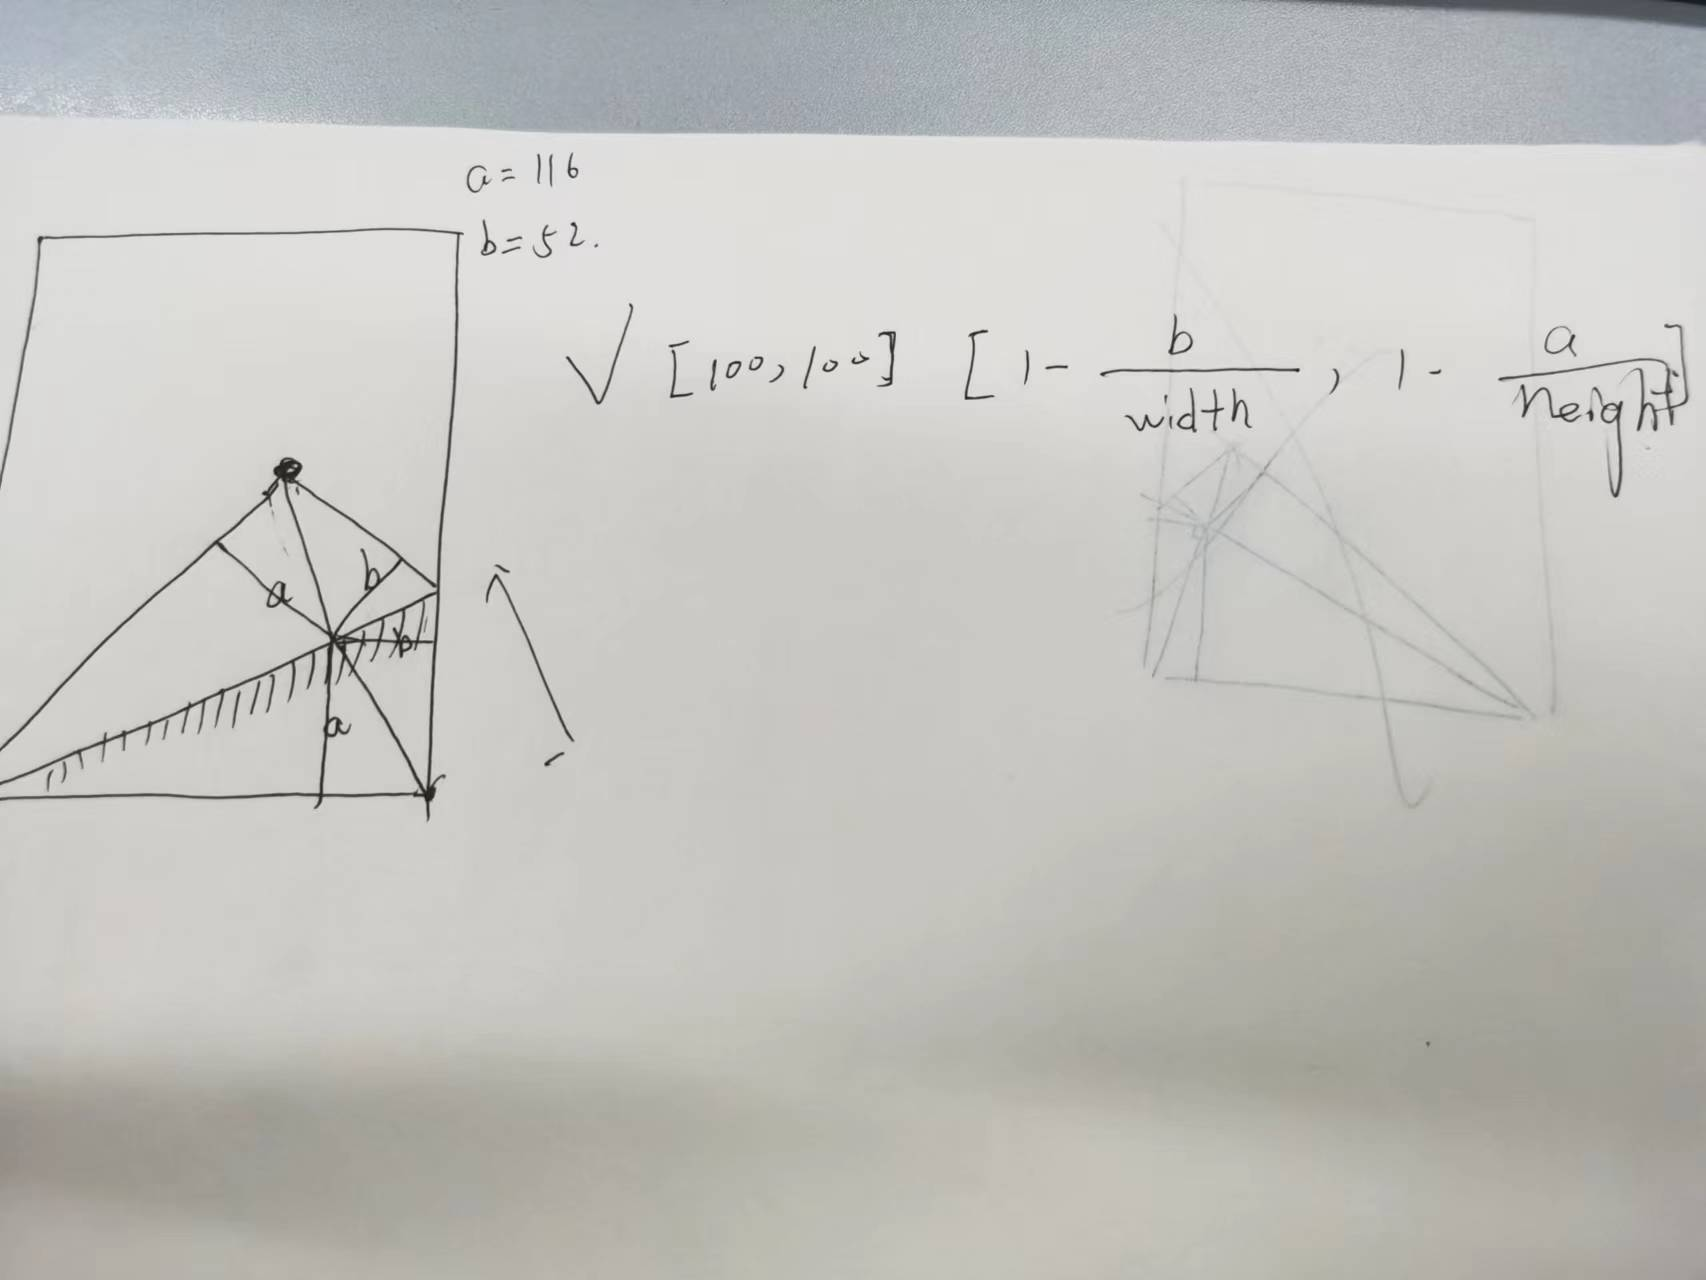 a = 116
b = 52.
√ [100, 100] [1 - b/width, 1 - a/height]
a
b
b
a